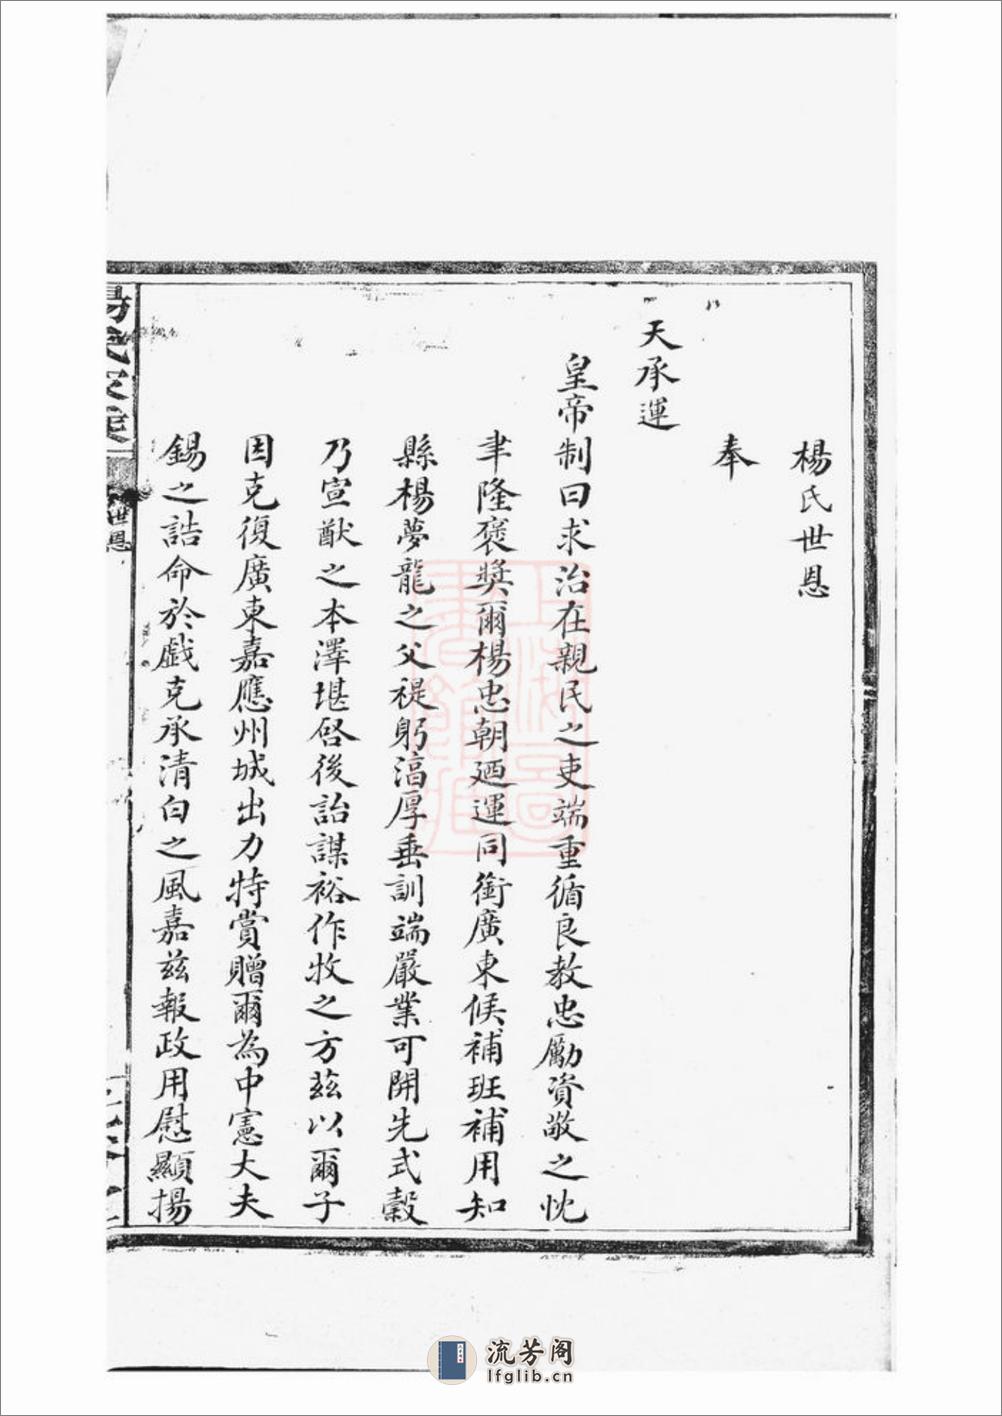 楊氏世恩
奉
天承運
皇帝制曰求治在親民之吏端重循良教忠勵資敬之忱
聿隆褒獎爾楊忠朝廼運同銜廣東候補班補用知
縣楊夢龍之父禔躬淳厚垂訓端嚴業可開先式穀
乃宣猷之本澤堪啓後詒謀裕作牧之方茲以爾子
因克復廣東嘉應州城出力特賞贈爾為中憲大夫
錫之誥命於戲克承清白之風嘉茲報政用慰顯揚
世恩
流芳阁
lfglib.cn